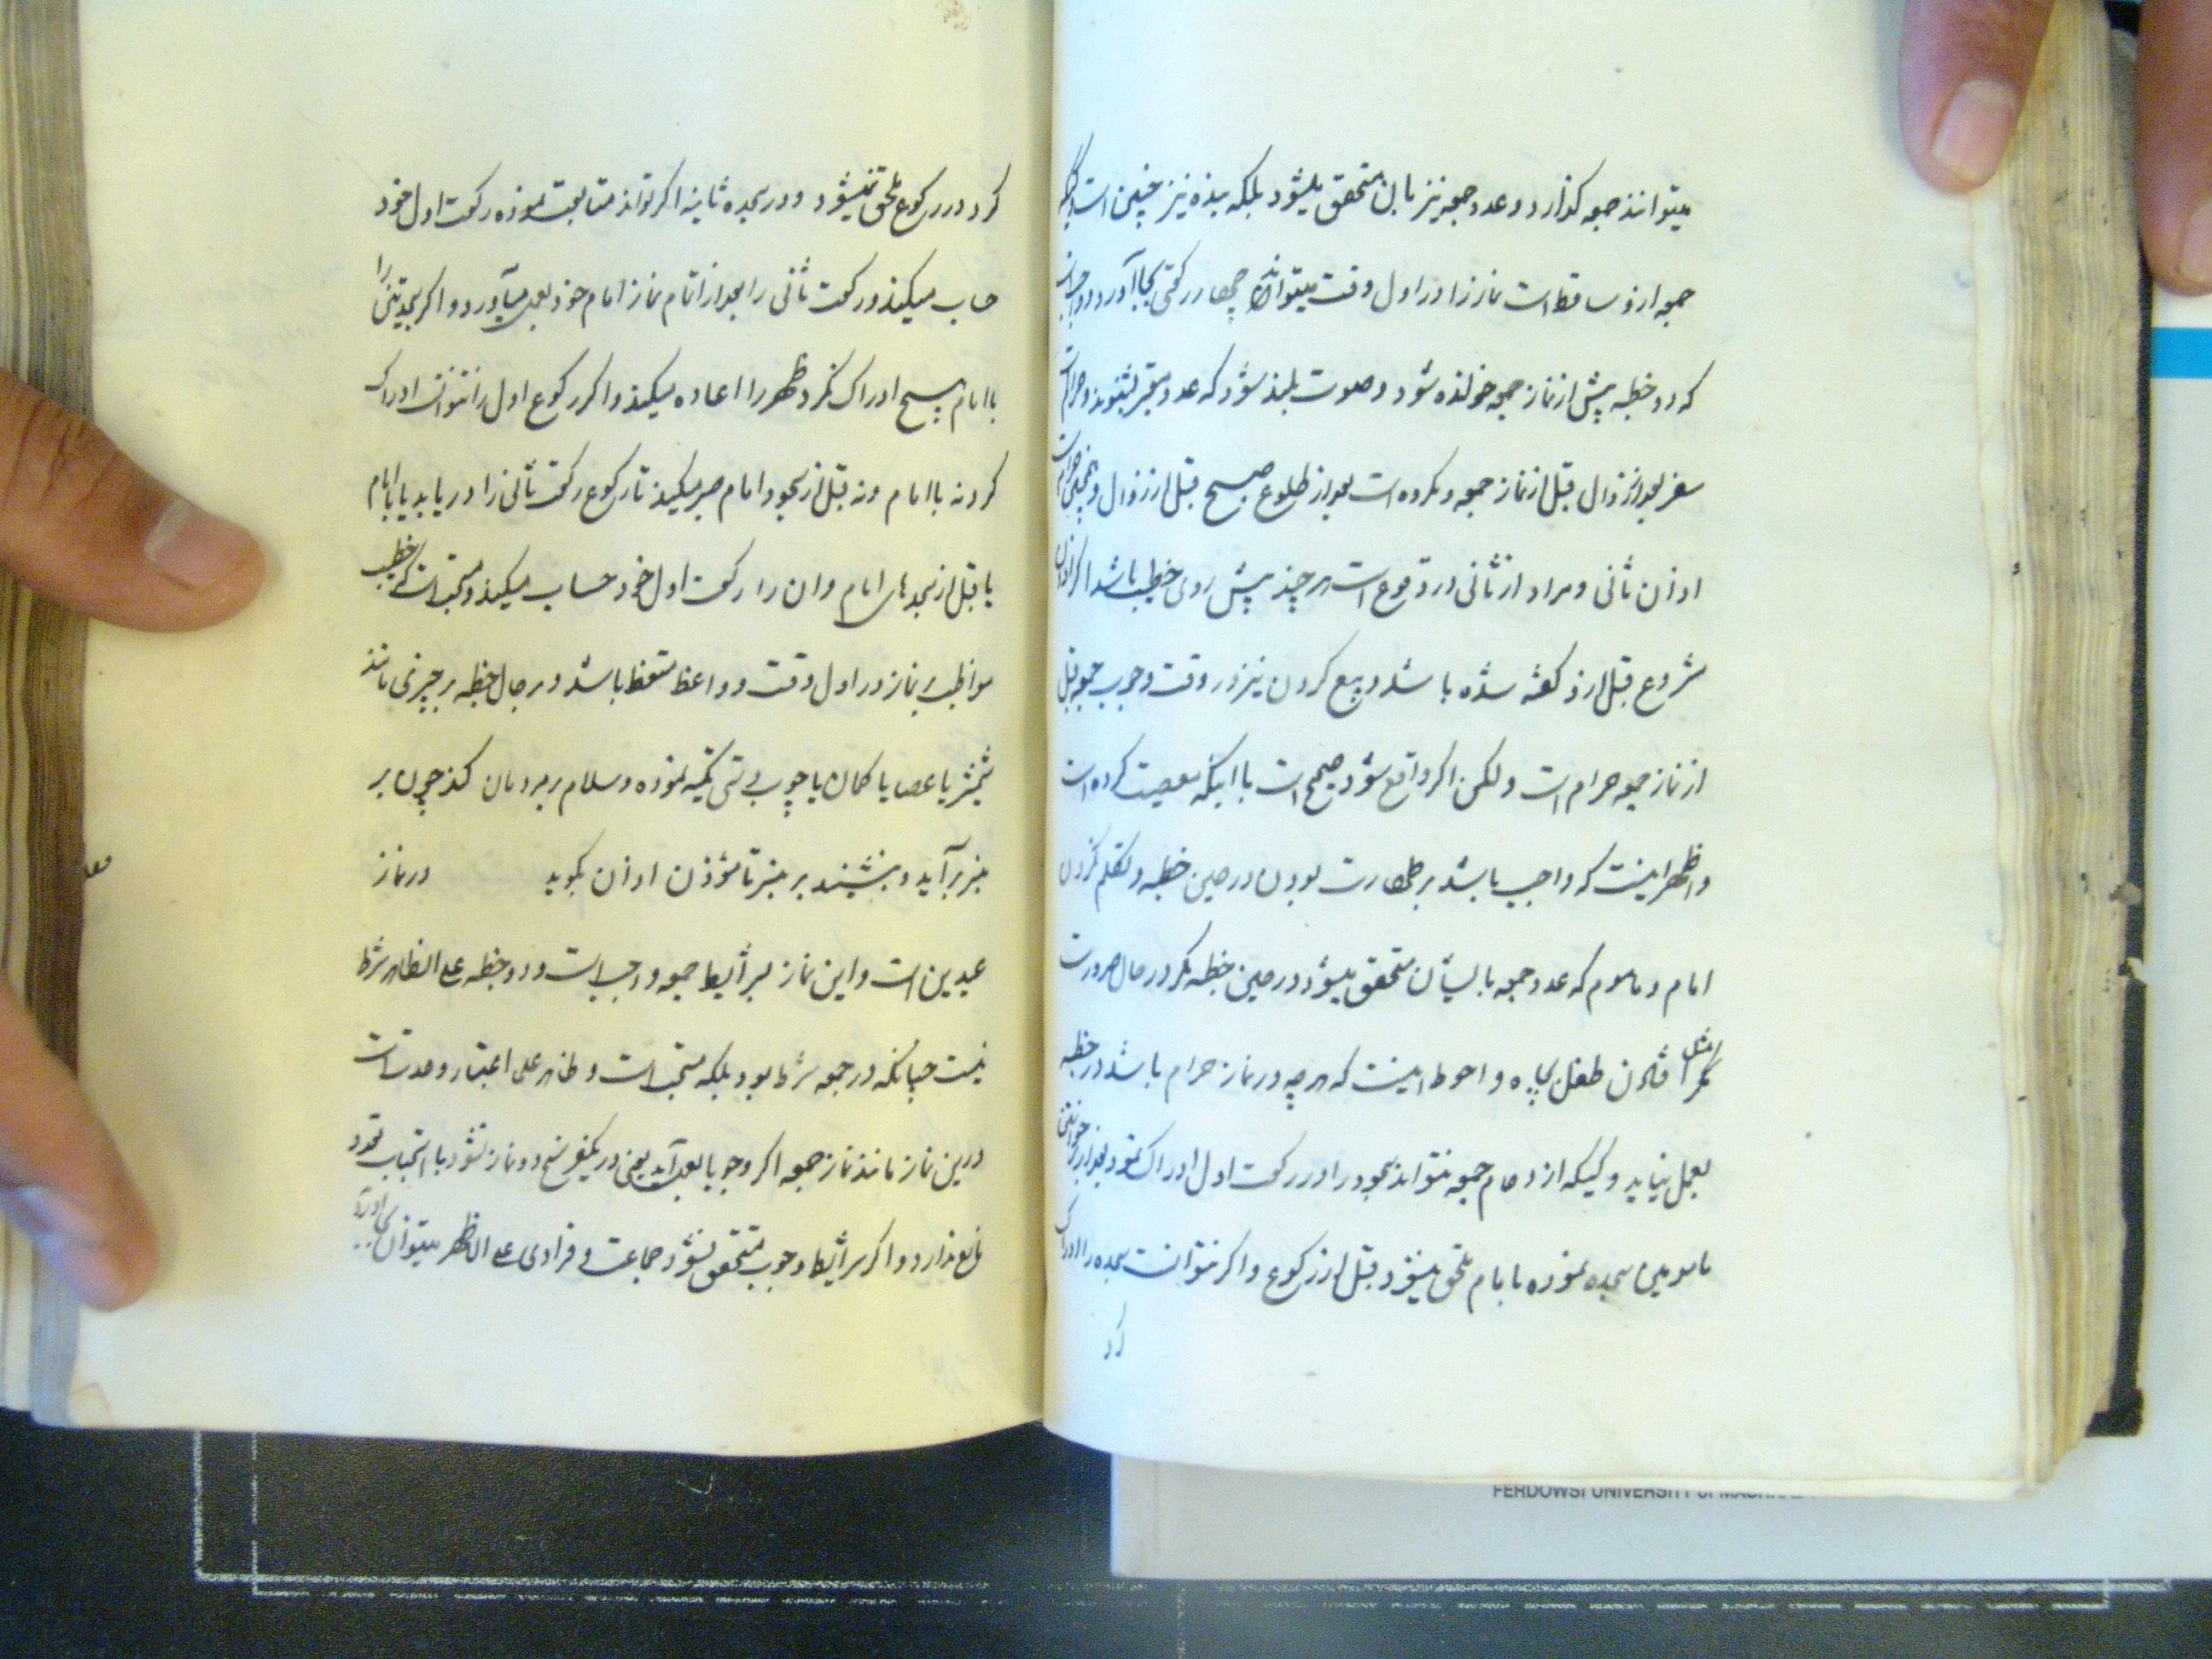 میتوانند جمعه کذارد و عدد جمعه نیز بآن متحقق میشود بلکه بنده نیز چنین است
جمعه ازو ساقط است نماز را در اول وقت میتواند چهار رکعتی بجا آورد و واجب است
که دو خطبه پیش از نماز جمعه خوانده شود و صوت بلند شود که عدد معتبر بشنوند و حرام است
سفر بعد از زوال قبل از نماز جمعه و مکروه است بعد از طلوع صبح قبل از زوال و همچنین حرام است
اذان ثانی و مراد از ثانی در وقوع است هر چند پیش روی خطیب باشد اگر اذان
مشروع قبل ازو کفته شده باشد و بیع کردن نیز در وقت وجوب جمعه قبل
از نماز جمعه حرام است ولکن اکر واقع شود صحیح است با اینکه معصیت کرده است
و اظهر اینست که واجب باشد بر طهارت بودن در حین خطبه و تکلم نکردن
امام و ماموم که عدد جمعه بایشان متحقق میشود در حین خطبه مکر در حال ضرورت
مثل افتادن طفل بچاه و احوط اینست که هر چه در نماز حرام باشد در خطبه
بعمل نیاید و کسیکه از ازدحام جمعه نتواند سجود را در رکعت اول ادراک نمود بعد از برخواستن
مامومین سجده نموده بامام ملحق میشود قبل از رکوع و اکر نتوانست سجده را ادراک
کرد
کرد در رکوع ملحق نمیشود و در سجده ثانیه اکر تواند متابعت نموده رکعت اول خود
حساب میکند و رکعت ثانی را بعد از اتمام نماز امام خود بعمل میآورد و اکر سجدتین را
با امام هیچ ادراک نکرد ظهر را اعاده میکند و اکر رکوع اول را نتوانست ادراک
کرد نه با امام و نه قبل از سجود امام صبر میکند تا رکوع رکعت ثانی را دریابد یا با امام
یا قبل از سجدهای امام و آن را رکعت اول خود حساب میکند و مستحب است که خطیب
مواظب بر نماز در اول وقت و واعظ متعظ باشد و در حال خطبه بر چیزی مانند
شمشیر یا عصا یا کمان یا چوب دستی تکیه نموده و سلام بر مردمان کند چون بر
منبر برآید و بنشیند بر منبر تا مؤذن اذان بکوید در نماز
عیدین است و این نماز بشرایط جمعه واجب است و دو خطبه علی الظاهر شرط
نیست چنانکه در جمعه شرط بود بلکه مستحب است و ظاهر علی اعتبار وحدت است
درین نماز مانند نماز جمعه اکر وجوبا بعمل آید یعنی در یکفرسخ دو نماز نشود با استحباب تعدد
مانع ندارد و اکر شرایط وجوب متحقق نشود جماعت و فرادی علی الاظهر میتوان بجا آورد
FERDOWSI UNIVERSITY of MASHHAD